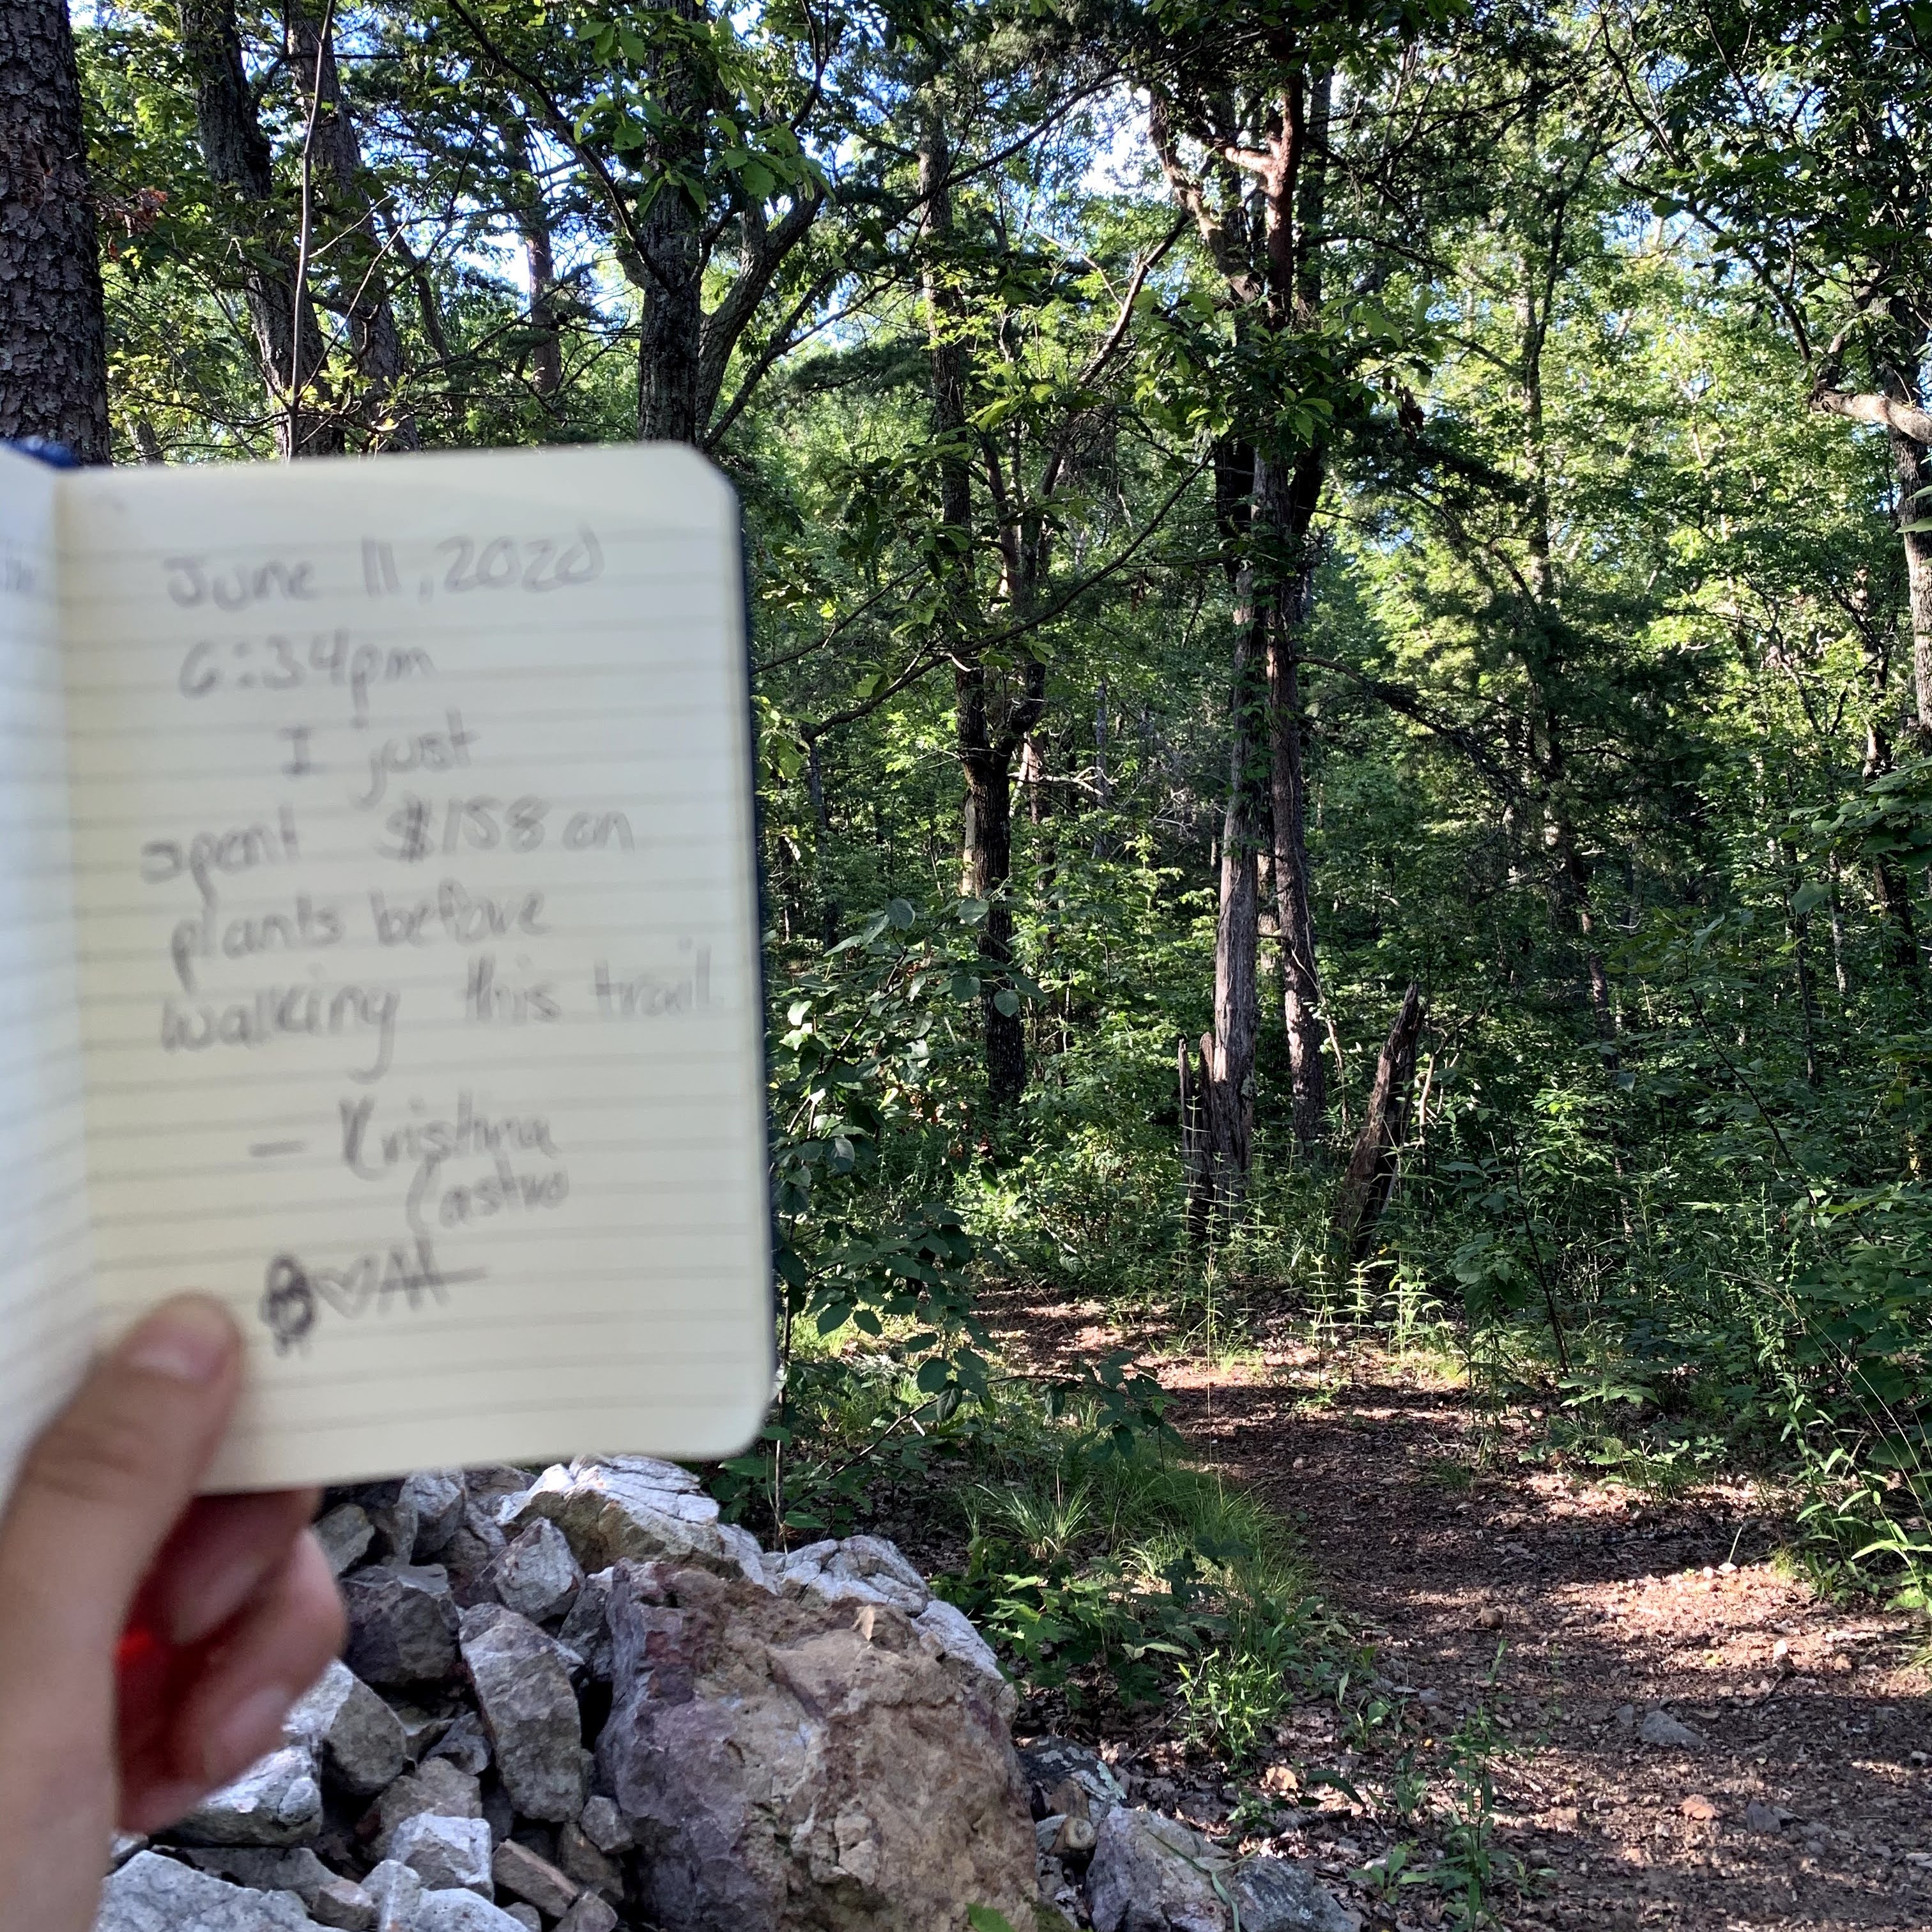 June 11, 2020
6:34pm
I just
spent $158 on
plants before
walking this trail.
— Kristina
Castro